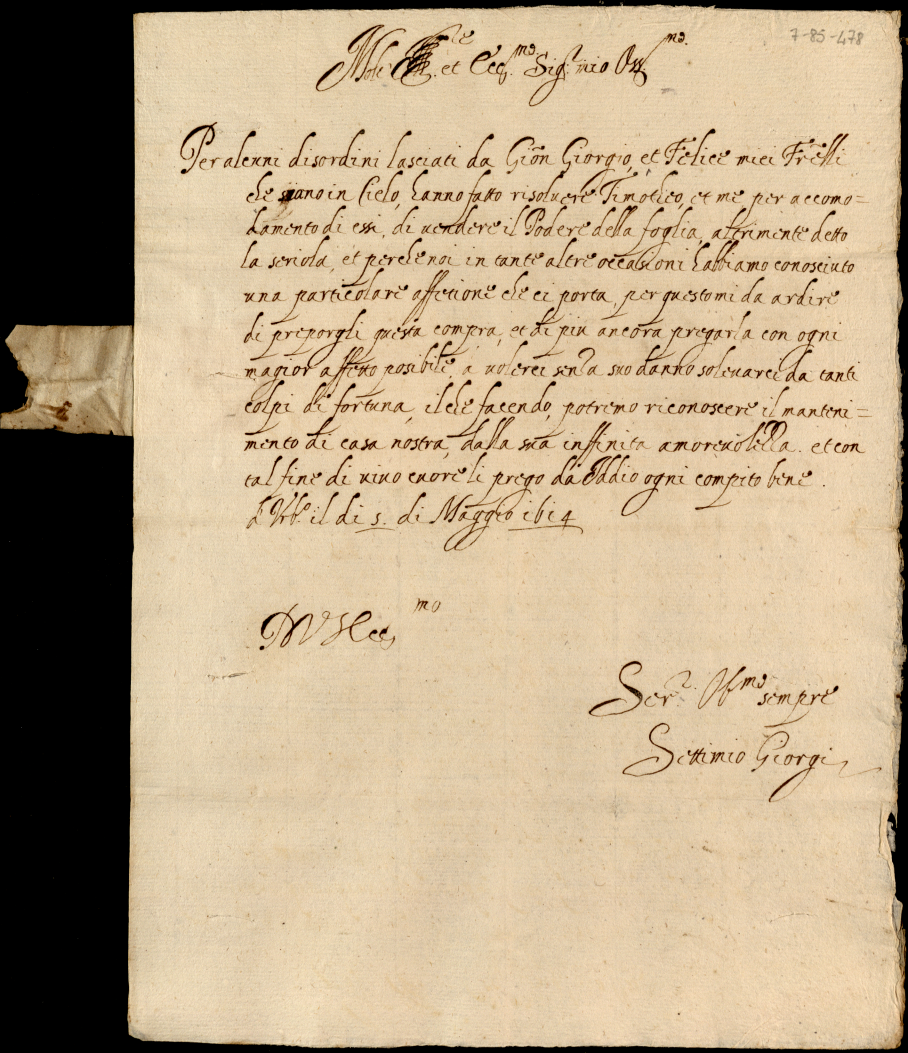 7-85-478
Molto Ill.re et Ecc.mo Sig.r mio Oss.mo
Per alcuni disordini lasciati da Gion Giorgio, et Felice miei Fr~elli
che siano in Cielo, hanno fatto risolvere Timotheo, et me per accomo=
damento di essi, di vendere il Podere della foglia, altrimente detto
la seriola, et perche noi in tante altre occasioni habbiamo conosciuto
una particolare affetione che ci porta, per questo mi da ardire
di preporgli questa compra, et di piu ancora pregarla con ogni
magior affetto posibile, a volerci senza suo danno solevarci da tanti
colpi di fortuna, il che facendo, potremo riconoscere il manteni=
mento di casa nostra, dalla sua inffinita amorevolezza. et con
tal fine di vivo cuore li prego da Iddio ogni compito bene.
d'Urb.o il di 5. di Maggio 1614
D V S Ecc.mo
Ser.r Obl.mo sempre
Settimio Giorgi